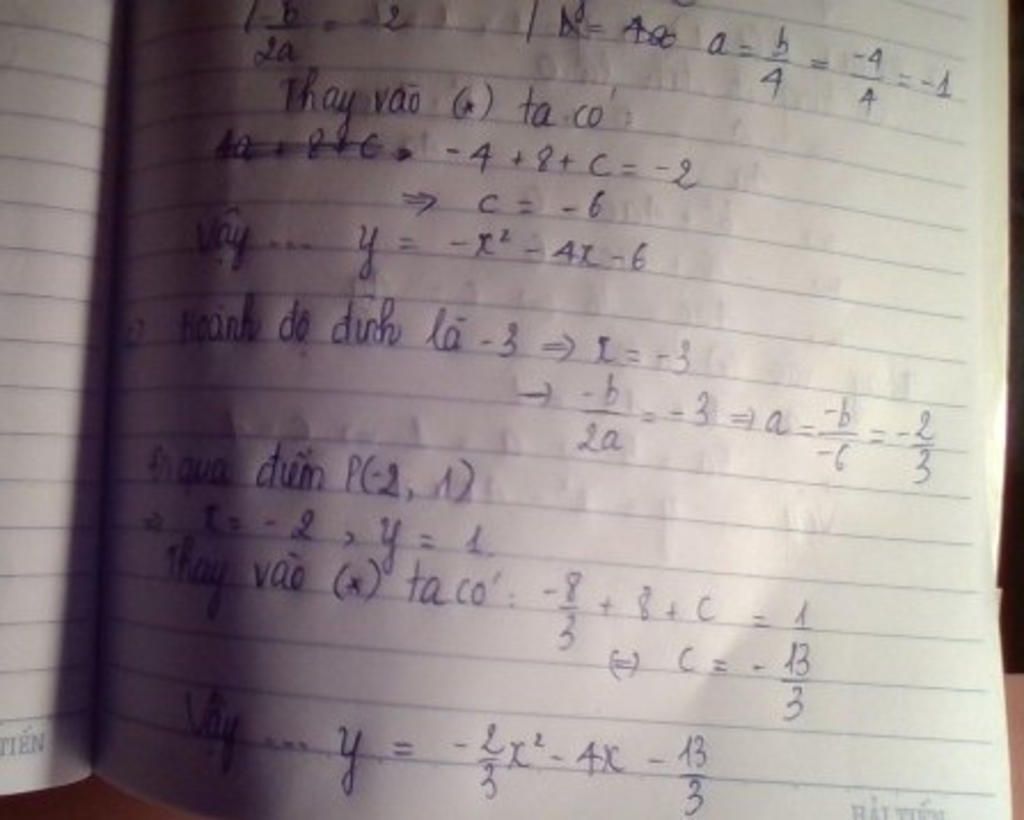 -b/2a = -2 a = b/4 = -4/4 = -1
Thay vào (*) ta có:
-4 + 8 + c = -2
⇒ c = -6
Vậy ... y = -x² - 4x - 6
Hoành độ đỉnh là -3 ⇒ x = -3
→ -b/2a = -3 ⇒ a = -b/-6 = -2/3
qua điểm P(-2, 1)
⇒ x = -2, y = 1.
Thay vào (*) ta có: -8/3 + 8 + c = 1
⇔ c = -13/3
Vậy ... y = -2/3x² - 4x - 13/3
TIẾN
HẢI TIẾN